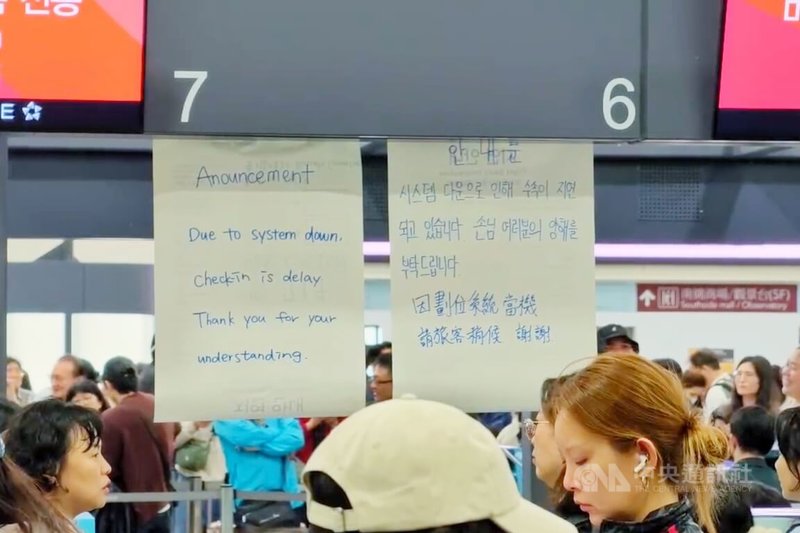 7
6
Anouncement
Due to system down.
Check-in is delay
Thank you for your
understanding.
안내문
시스템 다운으로 인해 수속이 지연
되고 있습니다. 손님 여러분의 양해를
부탁드립니다.
因劃位系統當機
請旅客稍候 謝謝
南側商場/觀景台(5F)
Southside mall / Observatory
中央通訊社
THE CENTRAL NEWS AGENCY